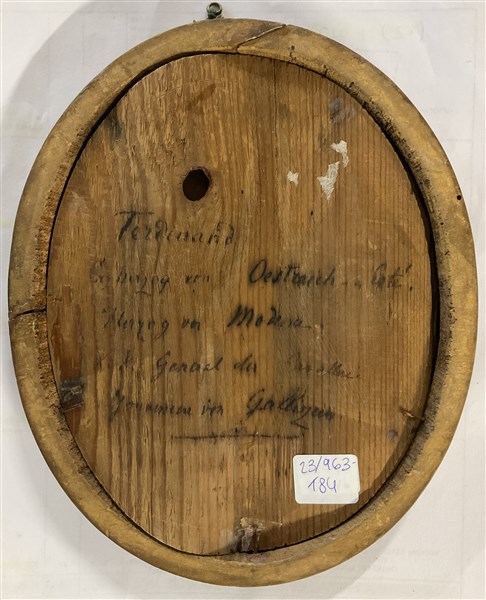 Ferdinand
Erzherzog von Oestreich - Este.
Herzog von Modena.
k. k. General der Cavallerie
Gouverneur von Gallizien
23/963-
184